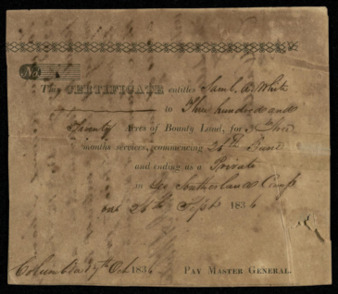 No
This CERTIFICATE entitles Saml. A. White
to Three hundred and
Twenty Acres of Bounty Land, for Three
months services, commencing 26th June
and ending as a Private
in Capt Sutherlands Comp
out 26th Sept 1836
Columbia 7th Oct. 1836 PAY MASTER GENERAL.